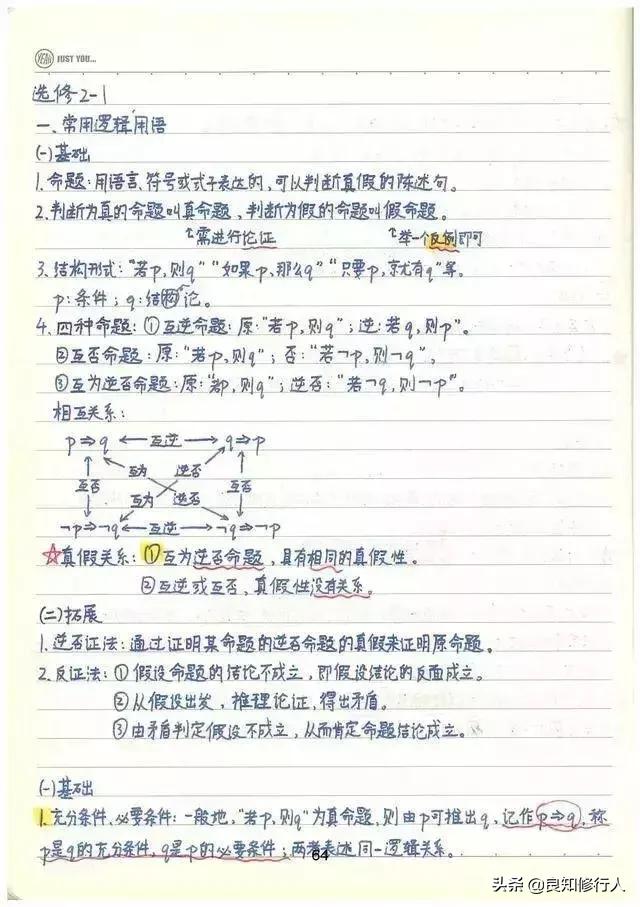 YEAH JUST YOU...
选修2-1
一、常用逻辑用语
(一)基础
1.命题:用语言、符号或式子表达的,可以判断真假的陈述句。
2.判断为真的命题叫真命题,判断为假的命题叫假命题。
↑需进行论证 ↑举一个反例即可
3.结构形式:“若p,则q”“如果p,那么q”“只要p,就有q”等。
p:条件;q:结论。
4.四种命题:①互逆命题:原:“若p,则q”;逆:若q,则p”。
②互否命题:原:“若p,则q”;否:“若¬p,则¬q”。
③互为逆否命题:原:“若p,则q”;逆否:“若¬q,则¬p”。
相互关系:
p⇒q ←互逆→ q⇒p
互为 逆否
互否 互否
互为 逆否
¬p⇒¬q ←互逆→ ¬q⇒¬p
☆真假关系:①互为逆否命题,具有相同的真假性。
②互逆或互否,真假性没有关系。
(二)拓展
1.逆否证法:通过证明某命题的逆否命题的真假来证明原命题。
2.反证法:①假设命题的结论不成立,即假设结论的反面成立。
②从假设出发,推理论证,得出矛盾。
③由矛盾判定假设不成立,从而肯定命题结论成立。
(一)基础
1.充分条件、必要条件:一般地,“若p,则q”为真命题,则由p可推出q,记作p⇒q,称
p是q的充分条件,q是p的必要条件;两者表述同一逻辑关系。
64
头条@良知修行人